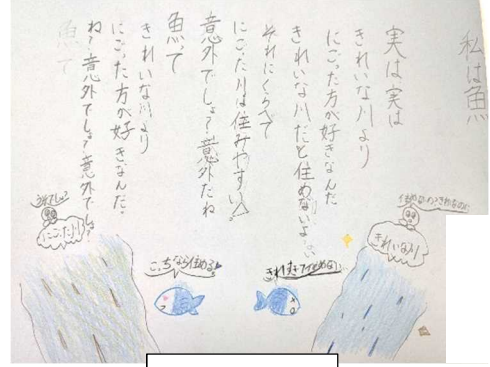 私は魚
実は実は
きれいな川より
にごった方が好きなんだ
きれいな川だと住めないよ。
それにくらべて
にごった川は住みやすい
意外でしょ？意外だね
魚って
きれいな川より
にごった方が好きなんだ。
ね？意外でしょ？意外でしょ？
きれいな川
にごった川
こっちなら住める